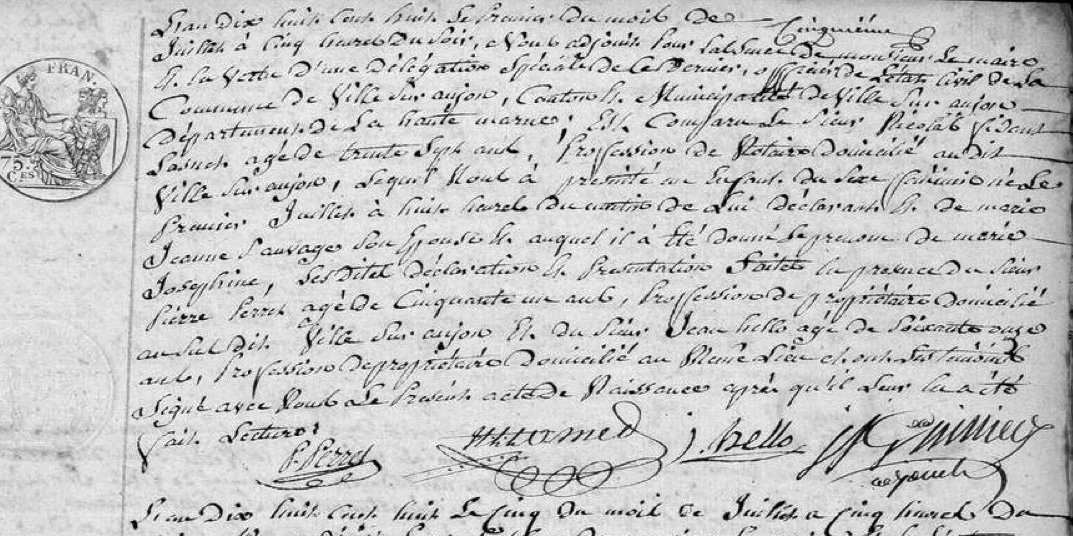 FRAN.
75
C.ES
L'an Dix huit Cent huit Le Premier Du mois De
Cinquième
Juillet à Cinq heures Du Soir, Nous adjoint pour L'absence De monsieur Le maire
Et la Vertu D'une Délégation Spéciale De Ce Dernier, officier De L'état Civil De La
Commune De Ville Sur aujon, Canton Et Municipalité De Ville Sur aujon
Département De La haute marne; Est Comparu Le Sieur Nicolas fidant
agé De trente Sept ans, Profession De Notaire Domicilié au Dit
Ville Sur aujon, Lequel Nous à présenté un Enfant Du Sexe féminin né Le
Premier Juillet à huit heures Du matin De Lui Déclarant Et De marie
Jeanne Sauvage Son Epouse Et auquel il à Eté Donné Le prenom De marie
Josephine, Les Dites déclaration Et Presentation Faites En presence Du Sieur
Pierre Perret agé De Cinquante un ans, Profession De propriétaire Domicilié
au Sus dit Ville Sur aujon Et Du Sieur Jean hello agé De Soixante onze
ans, Profession De propriétaire Domicilié au Même Lieu et ont Les temoins
Signé avec Nous Le Présent acte De Naissance après qu'il Leur En a été
fait Lecture;
P. Perret
j. hello
adjoint
L'an Dix huit Cent huit Le Cinq Du mois De Juillet a Cinq heures Du